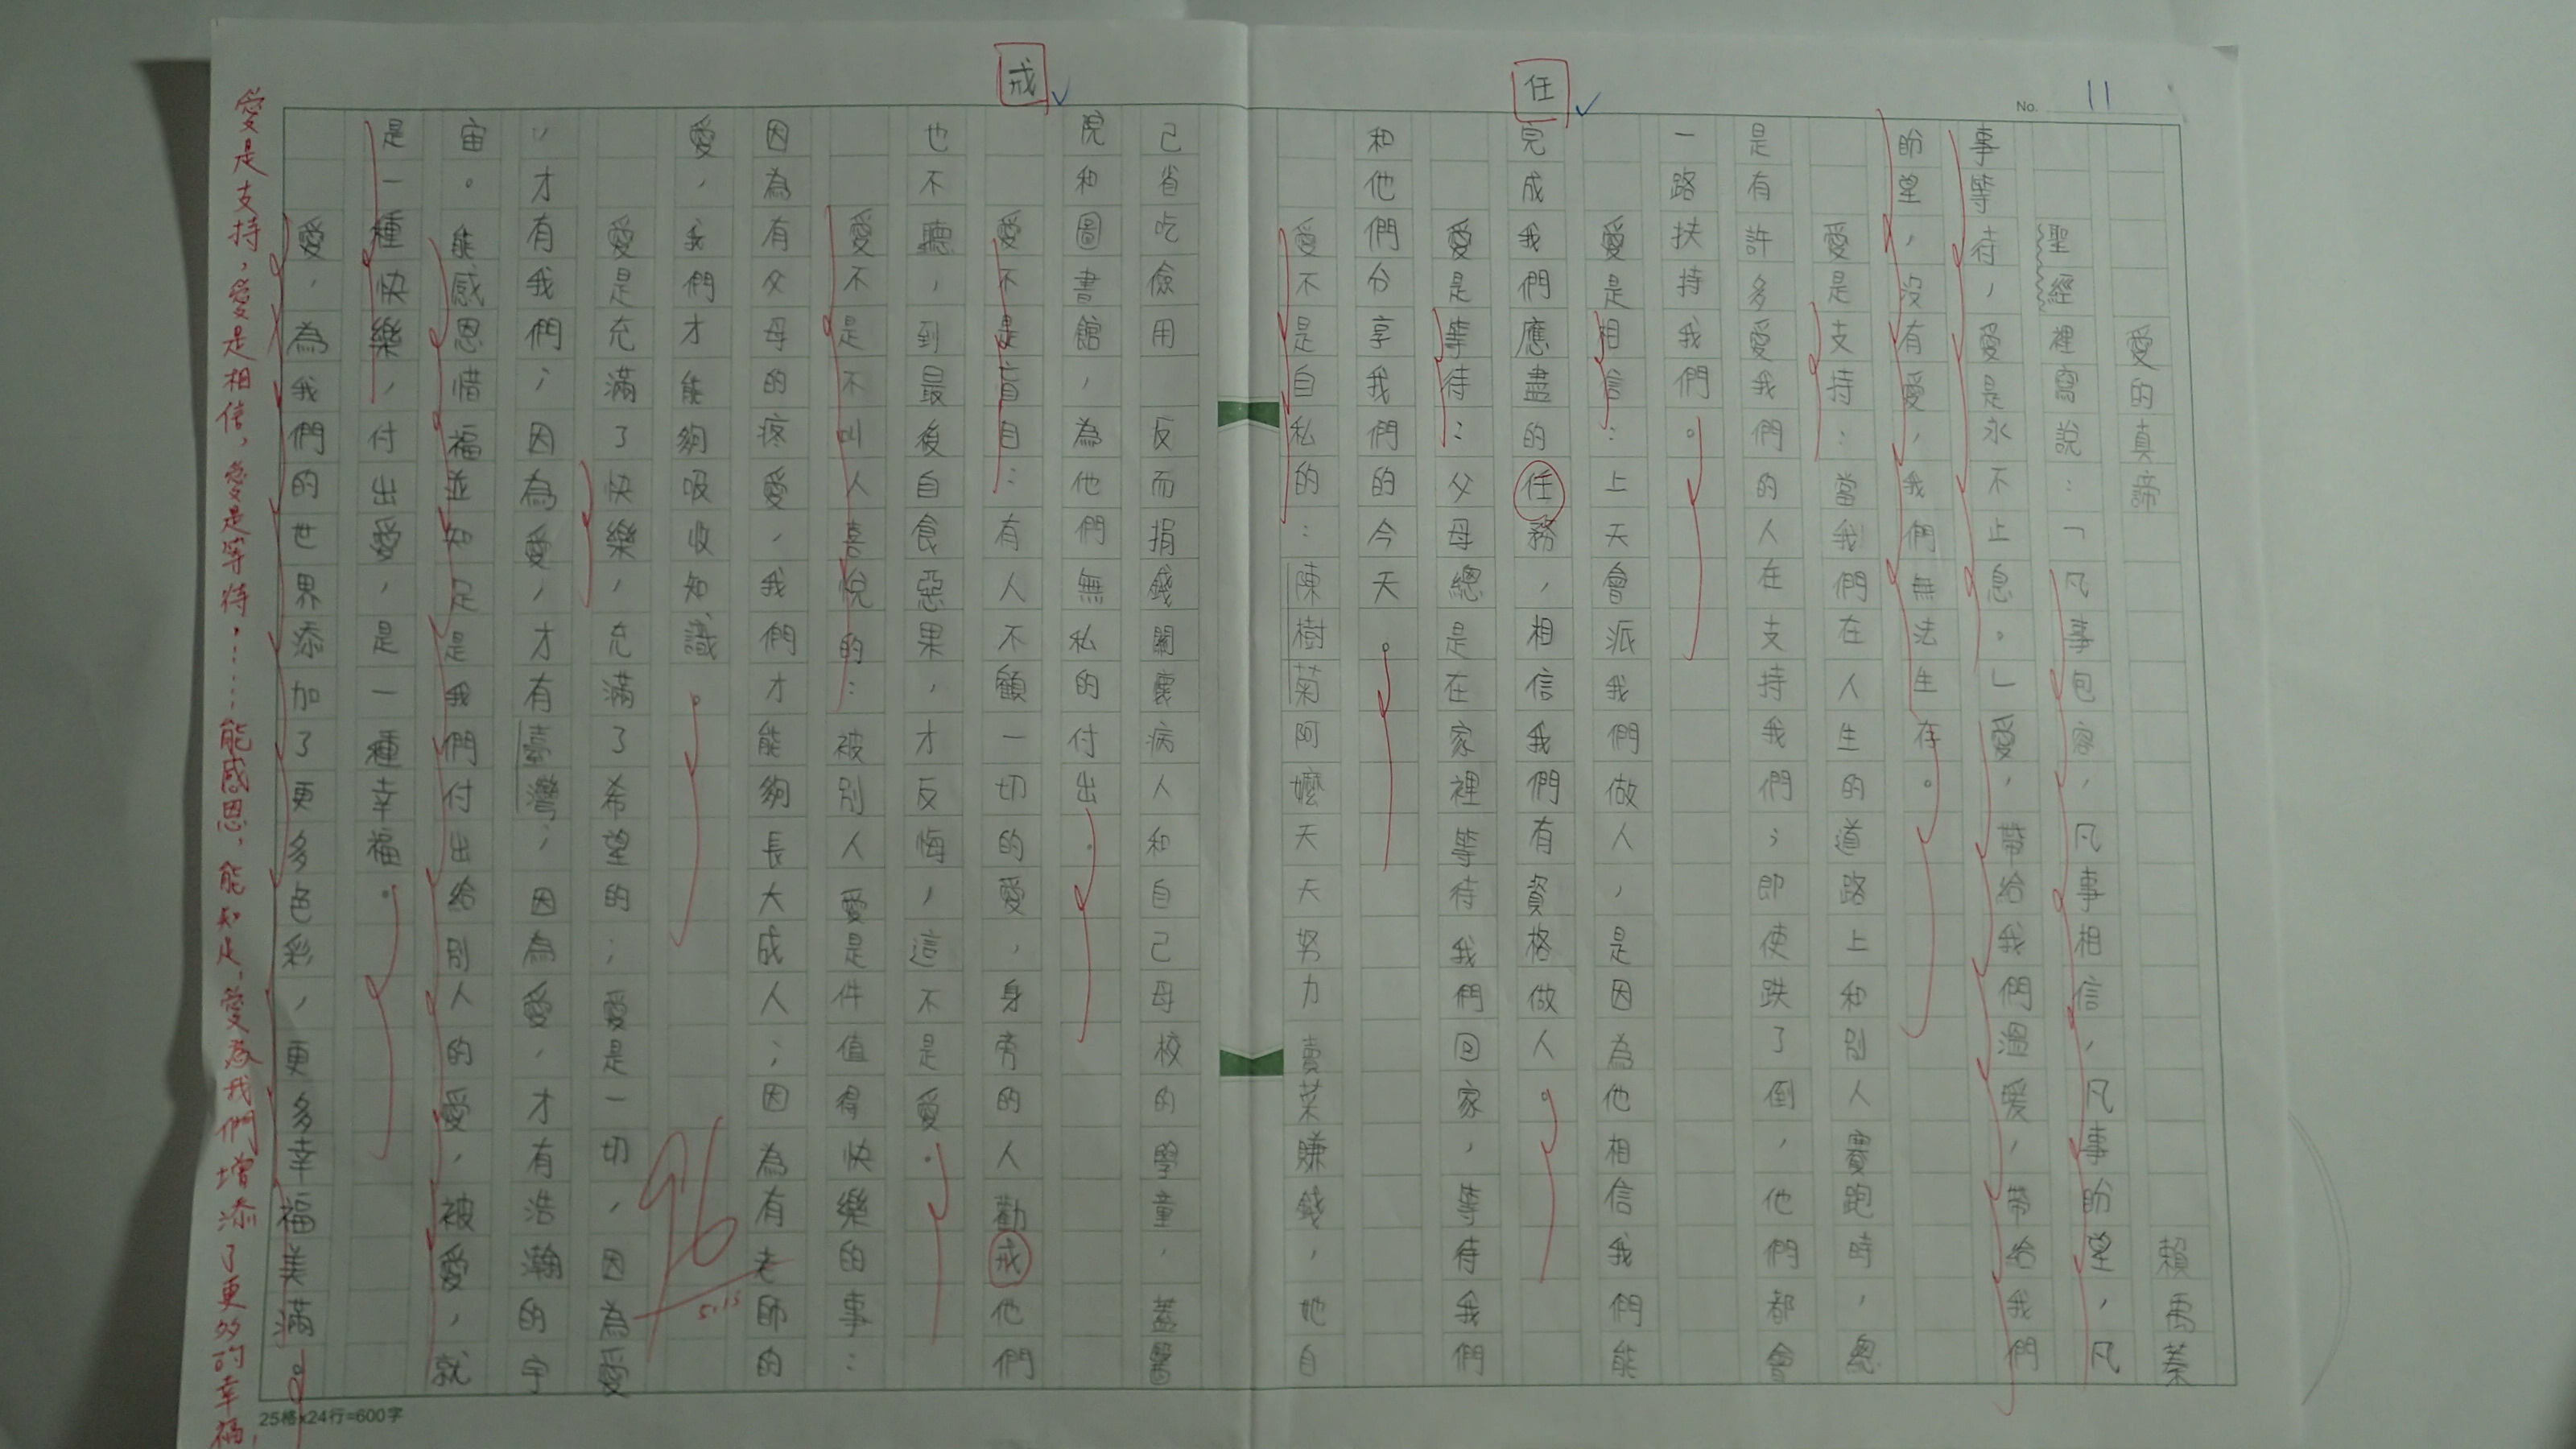 No. 11
任
戒
愛的真諦
賴禹蓁
聖經裡寫說：「凡事包容，凡事相信，凡事盼望，凡
事等待，愛是永不止息。」愛，帶給我們溫暖，帶給我們
盼望，沒有愛，我們無法生存。
愛是支持：當我們在人生的道路上和別人賽跑時，總
是有許多愛我們的人在支持我們；即使跌了倒，他們都會
一路扶持我們。
愛是相信：上天會派我們做人，是因為他相信我們能
完成我們應盡的任務，相信我們有資格做人。
愛是等待：父母總是在家裡等待我們回家，等待我們
和他們分享我們的今天。
愛不是自私的：陳樹菊阿嬤天天努力賣菜賺錢，她自
己省吃儉用 反而捐錢關懷病人和自己母校的學童，蓋醫
院和圖書館，為他們無私的付出。
愛不是盲目：有人不顧一切的愛，身旁的人勸戒他們
也不聽，到最後自食惡果，才反悔，這不是愛。
愛不是不叫人喜悅的：被別人愛是件值得快樂的事：
因為有父母的疼愛，我們才能夠長大成人；因為有老師的
愛，我們才能夠吸收知識。
愛是充滿了快樂，充滿了希望的；愛是一切，因為愛
，才有我們；因為愛，才有臺灣；因為愛，才有浩瀚的宇
宙。能感恩惜福並知足是我們付出給別人的愛，被愛，就
是一種快樂，付出愛，是一種幸福。
愛，為我們的世界添加了更多色彩，更多幸福美滿。
96
5.15
愛是支持，愛是相信，愛是等待……能感恩，能知足，愛為我們增添了更多的幸福，
25格x24行=600字